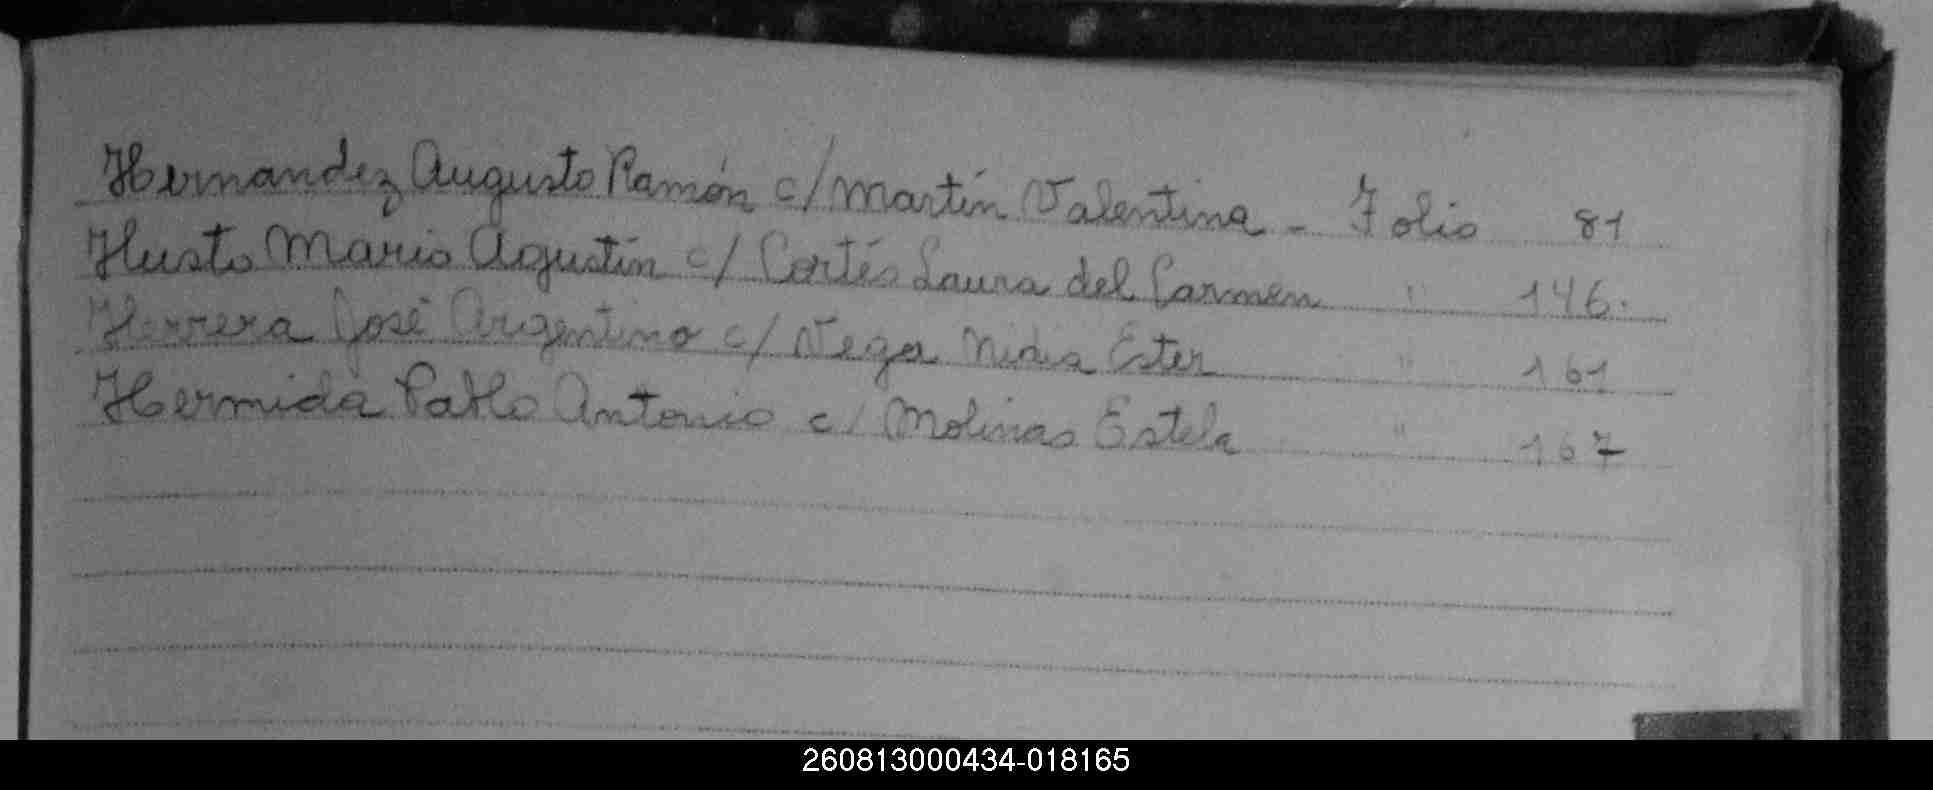 Hernandez Augusto Ramón c/ Martín Valentina - Folio 81
Husto Mario Agustín c/ Cortés Laura del Carmen " 146.
Herrera José Argentino c/ Vega Nidia Ester " 161
Hermida Pablo Antonio c/ Molinas Estela " 167
260813000434-018165